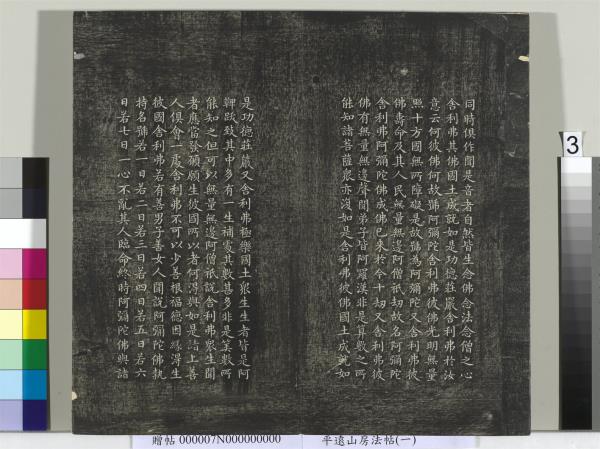 同時俱作聞是音者自然皆生念佛念法念僧之心
舍利弗其佛國土成就如是功德莊嚴舍利弗於汝
意云何彼佛何故號阿彌陀舍利弗彼佛光明無量
照十方國無所障礙是故號為阿彌陀又舍利弗彼
佛壽命及其人民無量無邊阿僧祇劫故名阿彌陀
舍利弗阿彌陀佛成佛已來於今十劫又舍利弗彼
佛有無量無邊聲聞弟子皆阿羅漢非是算數之所
能知諸菩薩衆亦復如是舍利弗彼佛國土成就如
是功德莊嚴又舍利弗極樂國土衆生生者皆是阿
鞞跋致其中多有一生補處其數甚多非是算數所
能知之但可以無量無邊阿僧祇說舍利弗衆生聞
者應當發願願生彼國所以者何得與如是諸上善
人俱會一處舍利弗不可以少善根福德因緣得生
彼國舍利弗若有善男子善女人聞說阿彌陀佛執
持名號若一日若二日若三日若四日若五日若六
日若七日一心不亂其人臨命終時阿彌陀佛與諸
3
贈帖 000007N000000000 平遠山房法帖(一)